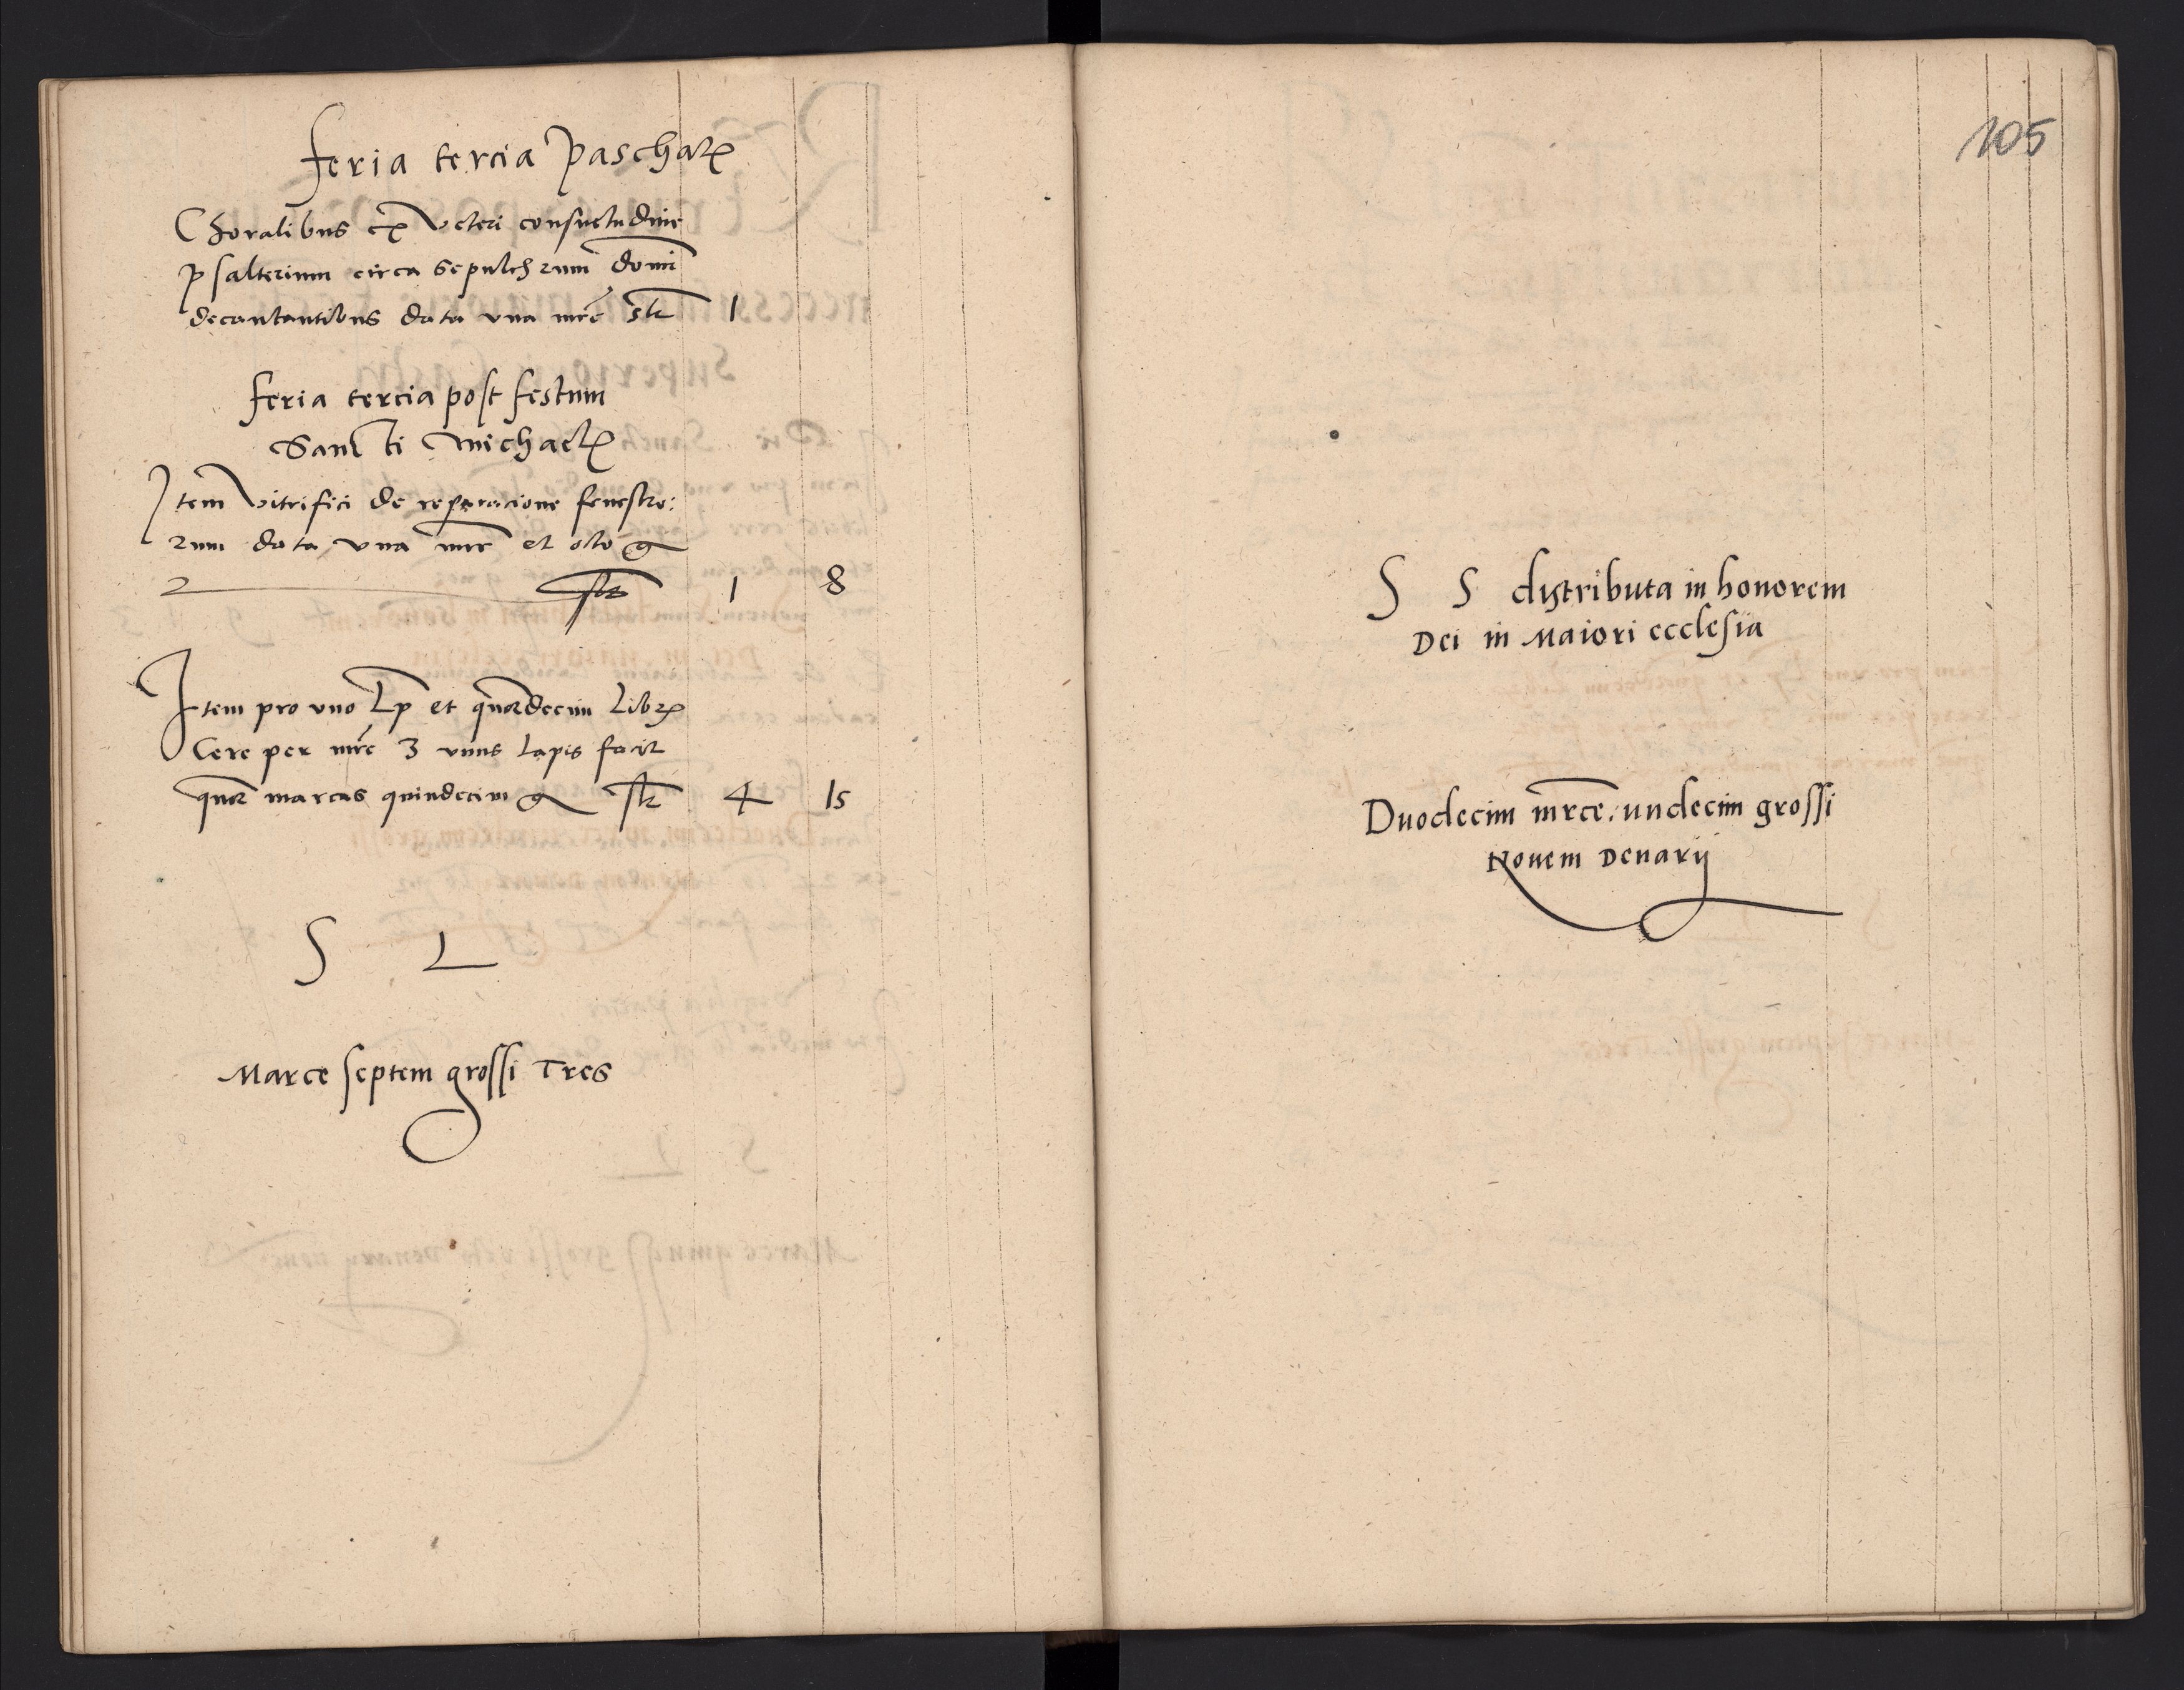 feria tercia Paschatꝭ
Choralibus ex veteri consuetudine
psalterium circa sepulchrum domi
decantantibus data vna mrc̄ 1
feria tercia post festum
Sancti Michaelꝭ
Item vitrifici de reparacione fenestra:
rum data vna mrc̄ et octo g
1 8
Item pro vno Lp et quordecim Librꝭ
Cere per mrc̄ 3 vnus Lapis facit
quor marcas quindecim g 4 15
S L
Marce septem grossi Tres
105
S S distributa in honorem
Dei in Maiori ecclesia
Duodecim mrce. undecim grossi
Nouem Denarij